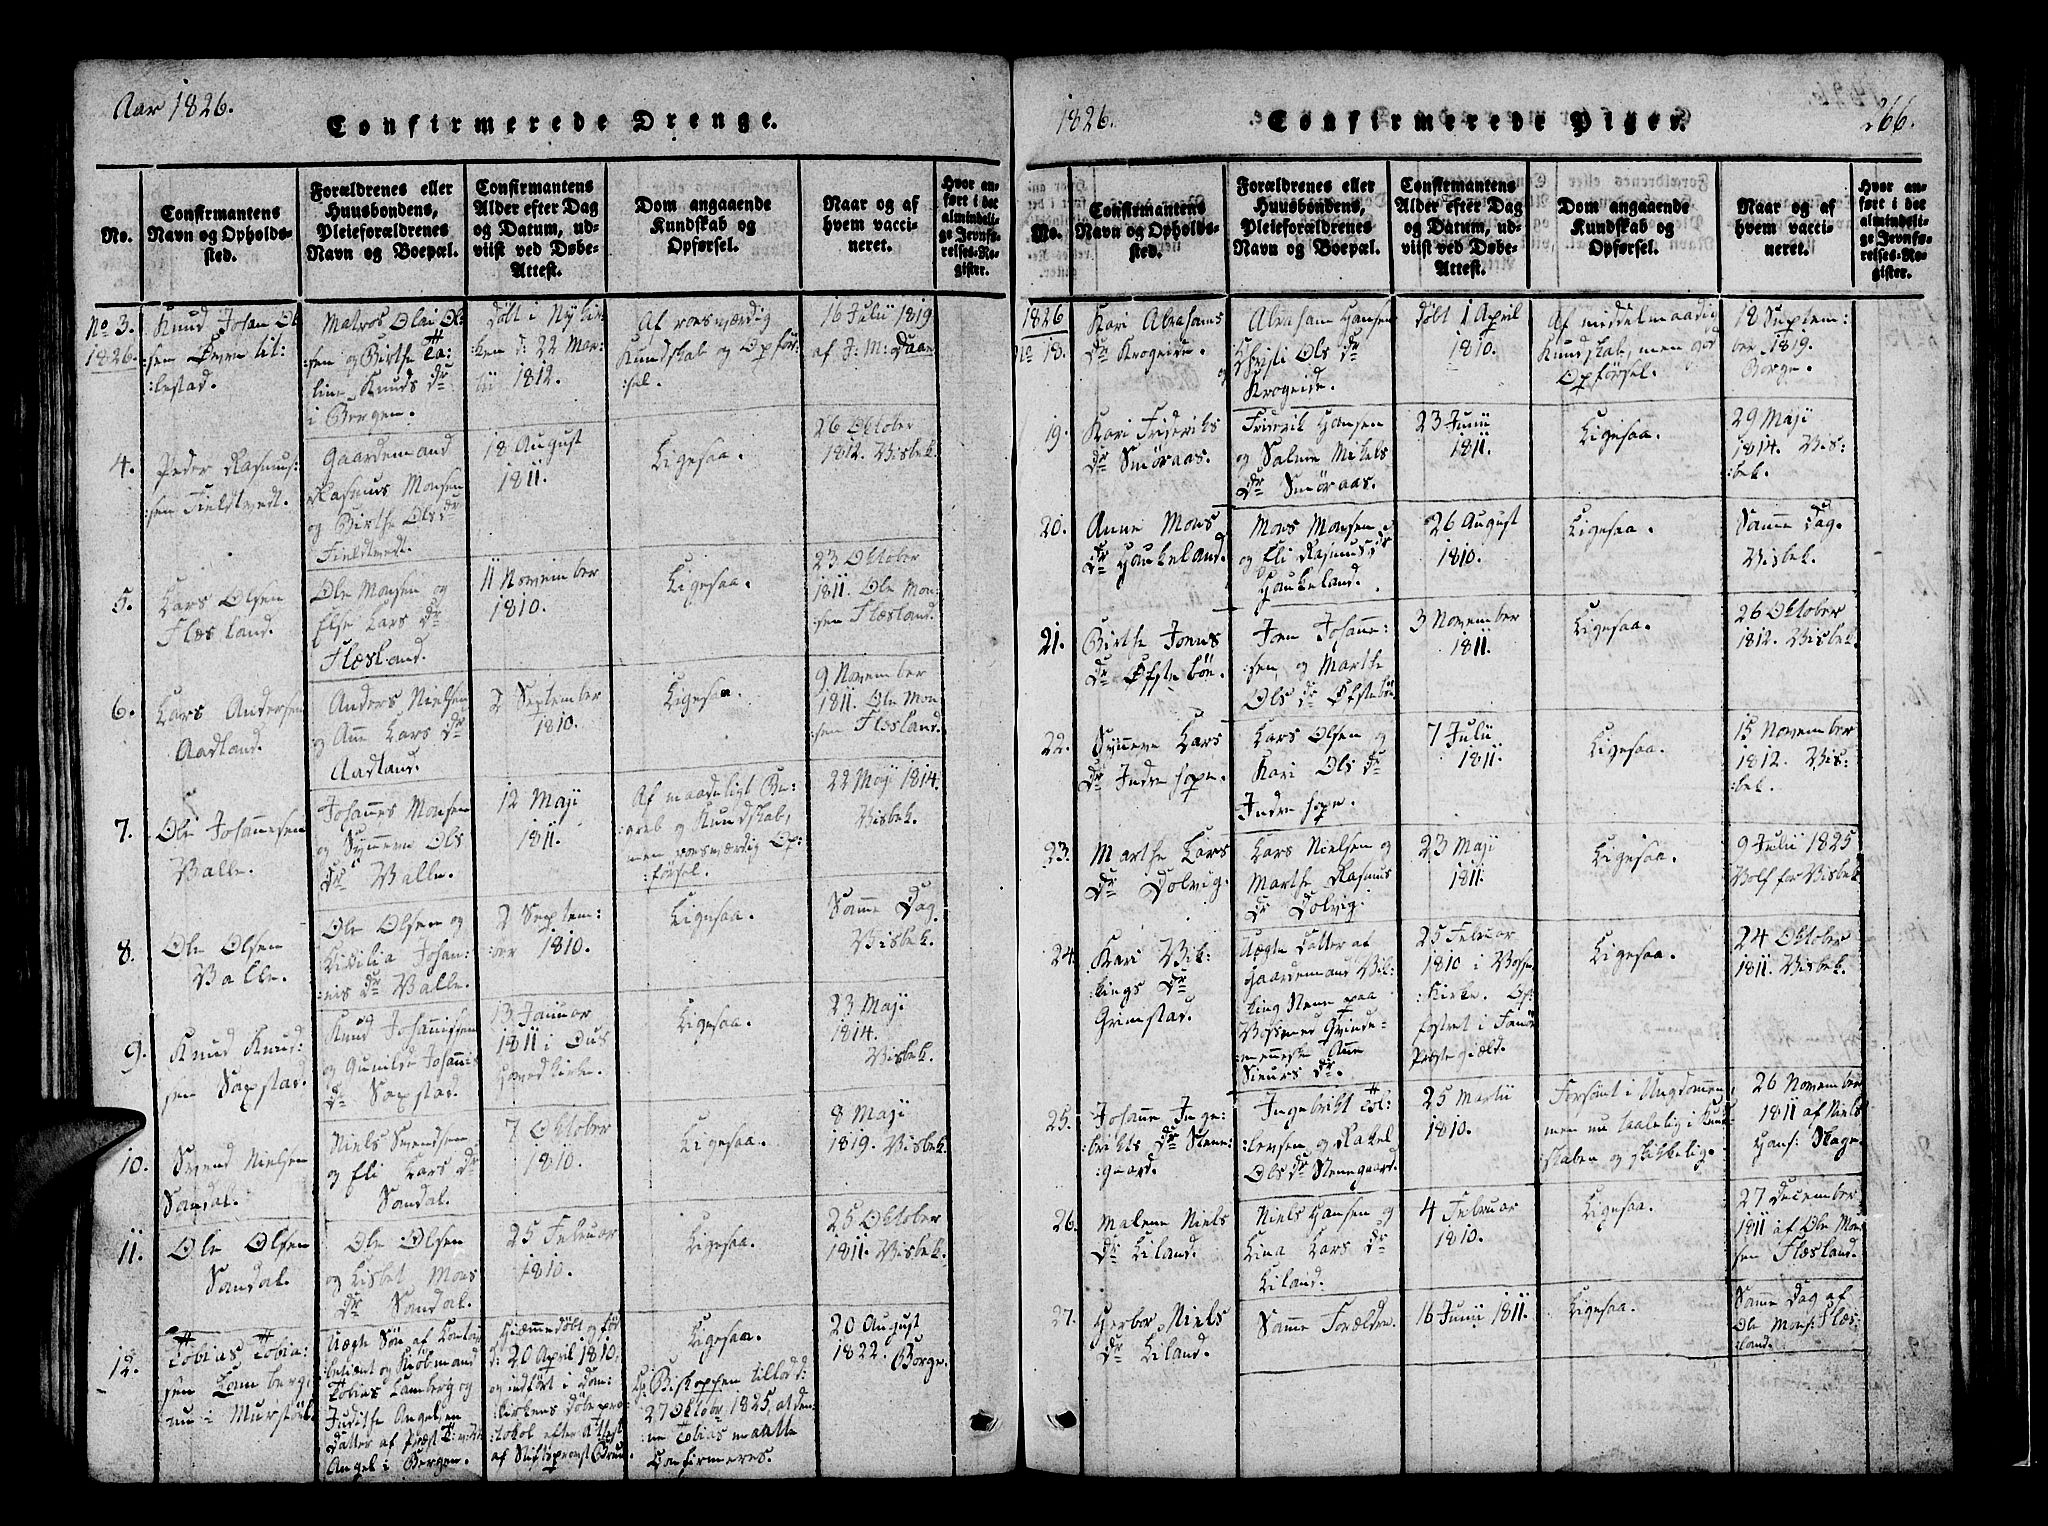 Aar 1826.
Confirmerede Drenge.
No.
Confirmantens
Navn og Opholds-
sted.
Forældrenes eller
Huusbondens,
Pleieforældrenes
Navn og Boepæl.
Confirmantens
Alder efter Dag
og Datum, ud-
viist ved Døbe-
Attest.
Dom angaaende
Kundskab og
Opførsel.
Naar og af
hvem vacci-
neret.
Hvor an-
ført i det
almindeli-
ge Jevnfø-
relses-Re-
gister.
No 3.
1826.
Knud Johan Ol
:sen
:lestad.
Matros Olai Ol:
sen og Birthe Ca:
:line Knuds dr
i Bergen.
døbt i Nykir:
ken d: 22 Mar:
tii 1812.
Af roesværdig
Kundskab og Opför:
:sel.
16 Julii 1819
af J: M: Daae
4.
Peder Rasmus:
:sen Fieldtvedt.
Gaardemand
Rasmus Monsen
og Birthe Ols dr
Fieldtvedt.
18 August
1811.
Ligesaa.
26 Oktober
1812. Visbek.
5.
Lars Olsen
Flæsland.
Ole Monsen og
Else Lars dr
Flæsland.
11 November
1810.
Ligesaa.
23 Oktober
1811. Ole Mon:
:sen Flæsland.
6.
Lars Andersen
Aadland.
Anders Nielsen
og Ane Lars dr
Aadland.
2 September
1810.
Ligesaa.
9 November
1811. Ole Mon
:sen Flæsland.
7.
Ole Johannesen
Valle.
Johannes Monsen
og Synneve Ols
dr Valle.
12 Maji
1811.
Af maadeligt Be:
greb og Kundskab,
men roesværdig Op:
:førsel.
22 Maji 1814.
Visbek.
8.
Ole Olsen
Valle.
Ole Olsen og
Cicilia Johan:
:nis dr Valle.
2 Septem:
:ber 1810.
Ligesaa.
Samme Dag
Visbek.
9.
Knud Knud:
sen Sapstad.
Knud Johannissen
og Gunilde Johannis
dr Sapstad.
13 Januar
1811 i Ous
hoved kirke.
Ligesaa.
23 Maji
1814.
Visbek.
10.
Svend Nielsen
Sandal.
Niels Svendsen
og Eli Lars dr
Sandal.
7 Oktober
1810.
Ligesaa.
8 Maji
1819. Visbek.
11.
Ole Olsen
Sandal.
Ole Olsen
og Lisbet Mons
dr Sandal.
25 Februar
1810.
Ligesaa.
25 Oktober
1811. Visbek.
12.
Tobias Tobia:
sen Lamberg,
nu i Murstöl.
Uægte Sön af
:betient og Kiöbmand
Tobias Lamberg og
Judithe Angelsen
Datter af Præst
Angel i Bergen.
Hiemmedöbt og föd
d: 20 April 1810,
og indfört i Dom:
:kirkens döbepro
:tokol efter Attest
af Stiftsprovst Brun.
Ligesaa.
Biskoppen tillod d:
27 Octobr 1825, at den:
:ne Tobias maatte
Confirmeres.
20 August
1822. Borge.
1826.
Confirmerede Piger.
266.
No.
Confirmantens
Navn og Opholds-
sted.
Forældrenes eller
Huusbondens,
Pleieforældrenes
Navn og Boepæl.
Confirmantens
Alder efter Dag
og Datum, ud-
viist ved Døbe-
Attest.
Dom angaaende
Kundskab og
Opførsel.
Naar og af
hvem vacci-
neret.
Hvor an-
ført i det
almindeli-
ge Jevnfø-
relses-Re-
gister.
1826
No 18.
Kari Abrahams
dr Krogeide.
Abraham Hansen
og Christi Ols dr
Krogeide.
døbt 1 April
1810.
Af middelmaadig
Kundskab, men god
Opförsel.
18 Septem:
ber 1819.
Borge.
19.
Kari Frideriks
dr Smöraas.
Friderik Hansen
og Salmie Mikels
dr Smöraas.
23 Junii
1811.
Ligesaa.
29 Maji
1814. Vis:
:bek.
20.
Anne Mons
dr Haukeland.
Mons Monsen
og Eli Rasmus dr
Haukeland.
26 August
1810.
Ligesaa.
Samme Dag.
Visbek.
21.
Birthe Jones
dr Øfstebön.
Joen Johanne:
:sen, og Marthe
Ols dr Øfstebön
3 November
1811.
Ligesaa.
26 Oktober
1812. Visbek.
22.
Synneve Lars
dr Indre hope.
Lars Olsen og
Kari Ols dr
Indre hope.
7 Julii
1811.
Ligesaa.
15 November
1812. Vis:
:bek.
23.
Marthe Lars
dr Dolvig.
Lars Nielsen og
Marthe Rasmus
dr Dolvig.
23 Maji
1811.
Ligesaa.
9 Julii 1825
Wolf for Visbek
24.
Kari Vik:
:kings dr
Grimstad.
Uægte Datter af
Gaardemand Vik:
king paa
Vossmed Qvinde:
menneske Anne
Siurs dr.
25 Februar
1810 i Vosse
:kirke. Op:
fostret i Fanö
Præstegield.
Ligesaa.
24 Oktober
1811. Visbek.
25.
Johanne Inge:
:brikts dr Steene:
:gaard.
Ingebrikt Tol:
levsen, og Rakel
Ols dr Steenegaard.
25 Martii
1810.
Forsömt i Ungdommen,
men nu taalelig i Kund:
skaben og skikkelig.
26 November
1811 af Niels
Hans: Stage.
26.
Malene Niels
dr Liland.
Niels Hansen og
Lina Lars dr
Liland.
4 Februar
1810.
Ligesaa.
27 December
1811 af Ole Mon
sen Flæsland.
27.
Herbor Niels
dr Liland.
Samme Forældre.
16 Junii 1811.
Ligesaa.
Samme Dag af
Ole Mons: Flæs
:land.